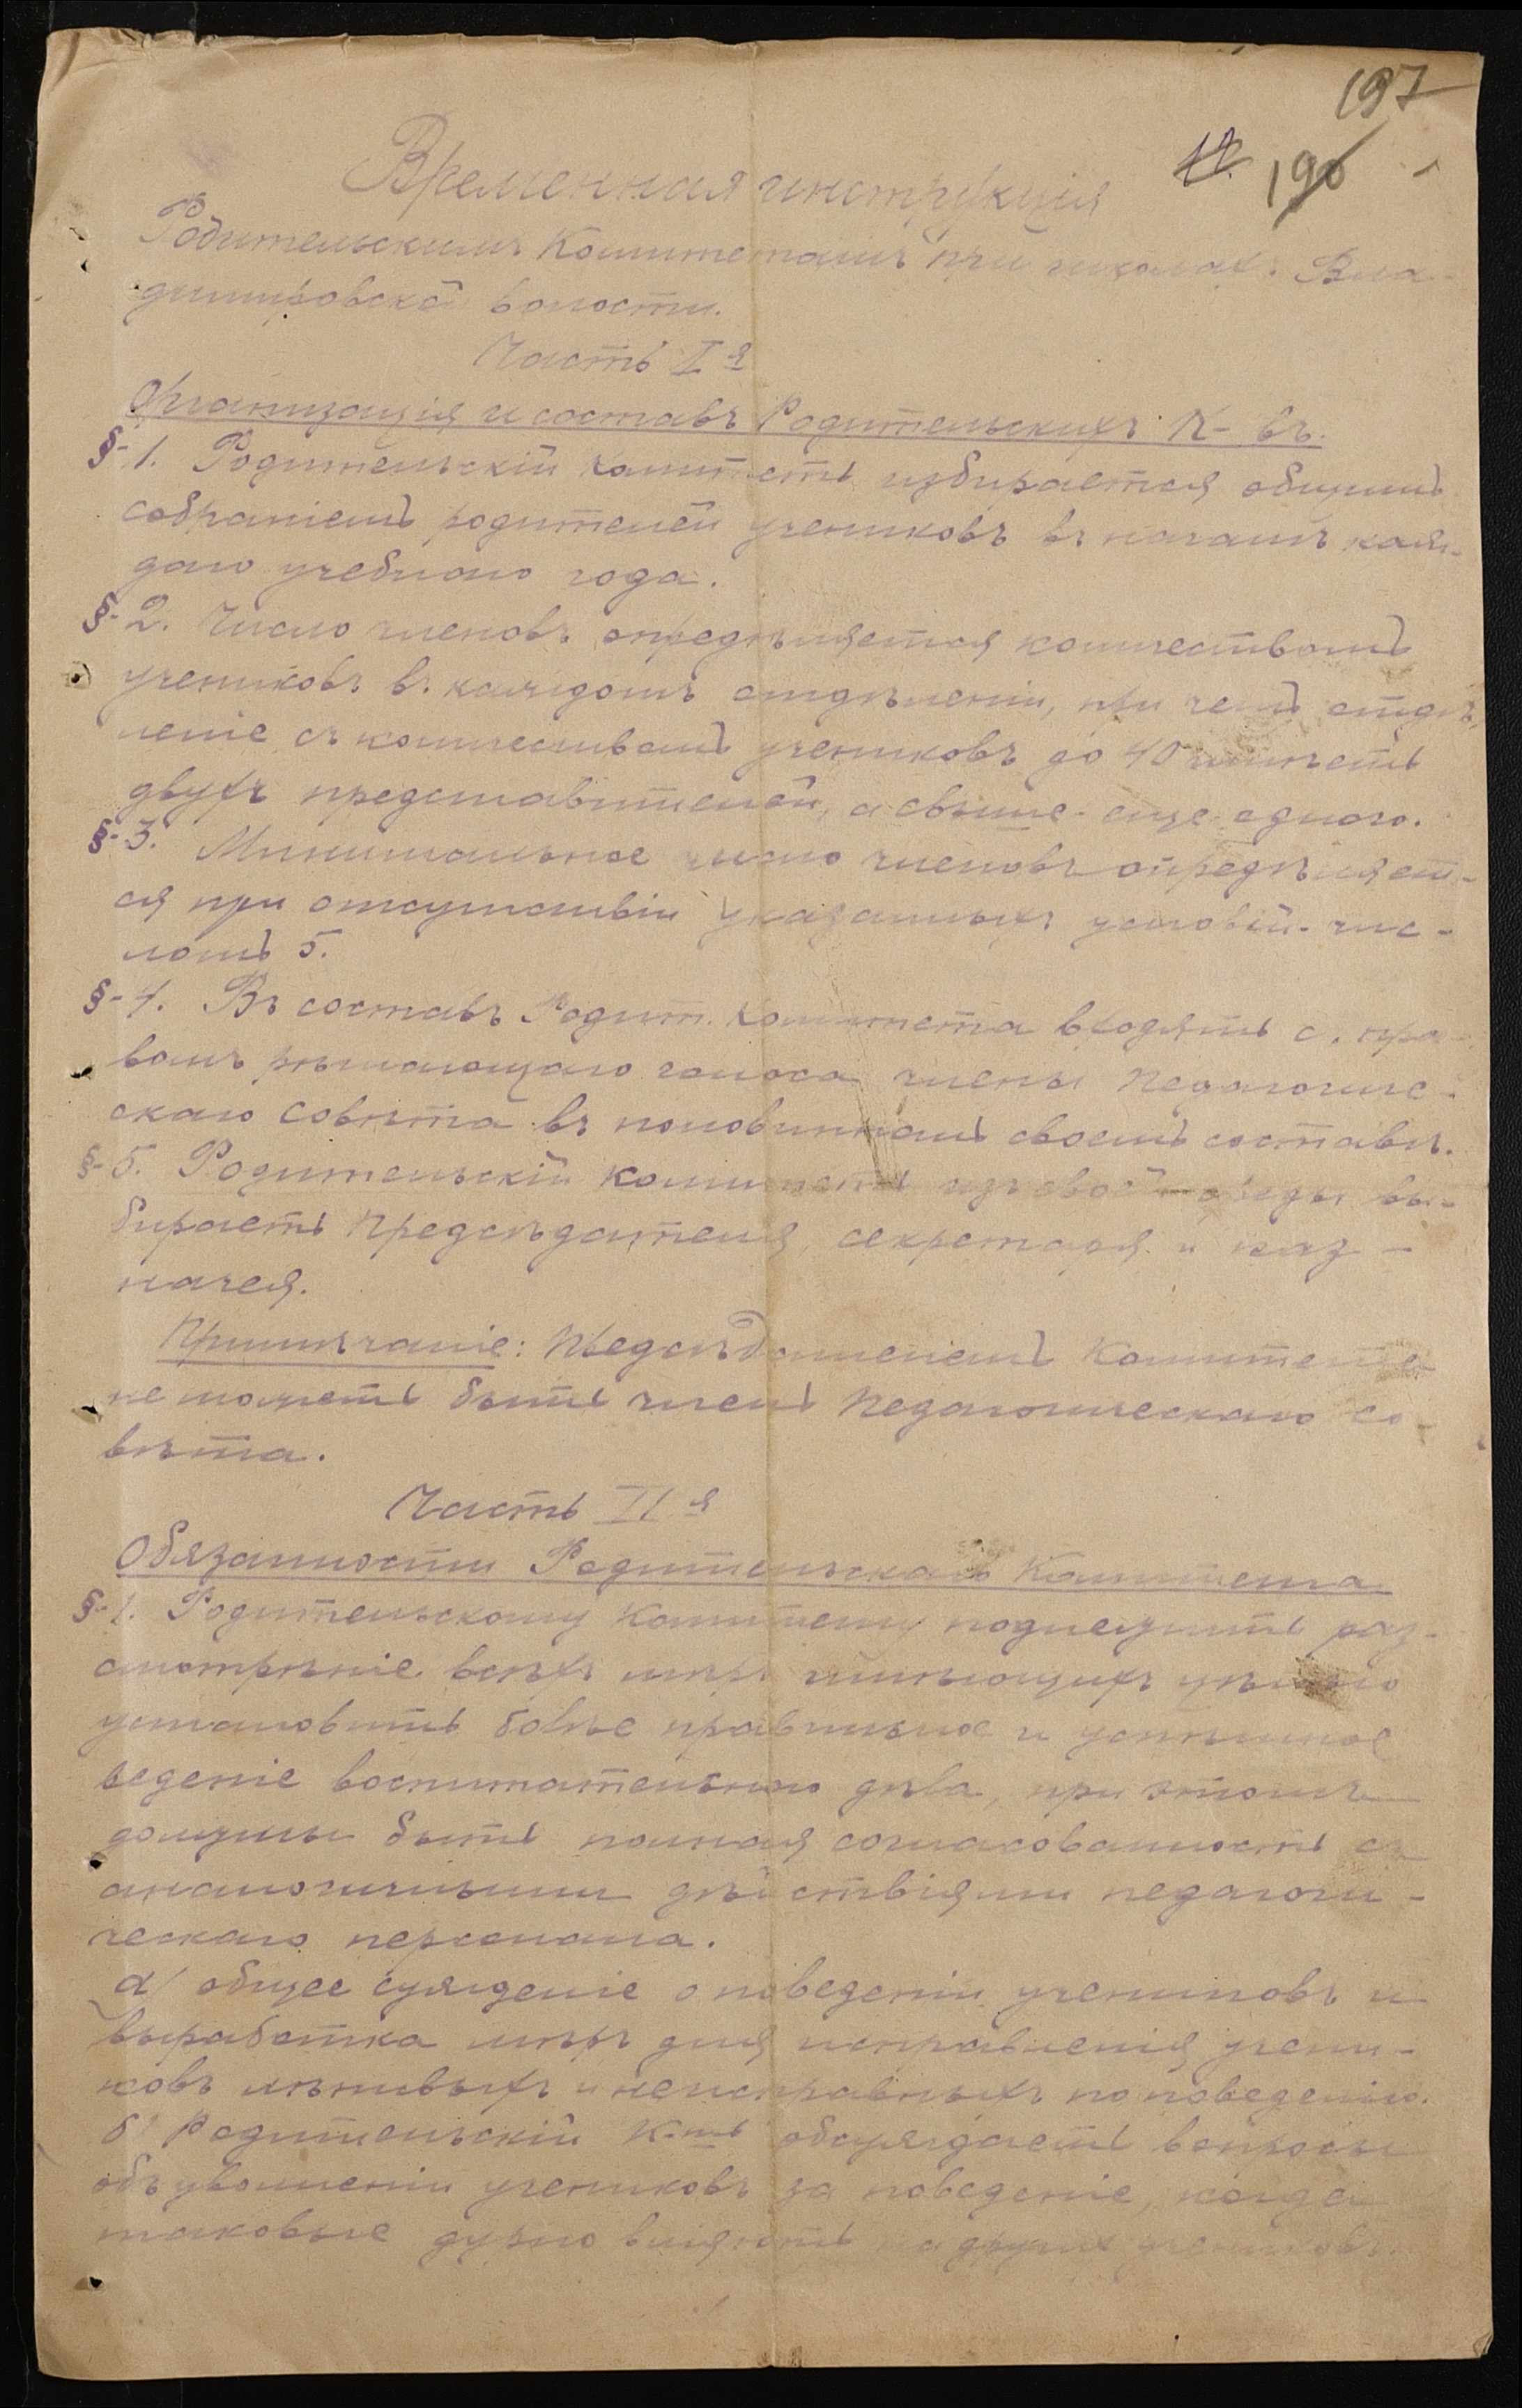 197
190
Временная инструкція
Родительскимъ Комитетамъ при школахъ Вла-
димировской волости.
Часть I я
Организація и составъ Родительскихъ К-въ.
§-1. Родительскій комитетъ избирается общимъ
собраніемъ родителей учениковъ въ началѣ каж-
даго учебнаго года.
§-2. Число членовъ опредѣляется количествомъ
учениковъ въ каждомъ отдѣленіи, при чемъ отдѣ-
леніе съ количествомъ учениковъ до 40 имѣетъ
двухъ представителей, а свыше - еще одного.
§-3. Минимальное число членовъ опредѣляет-
ся при отсутствіи указанныхъ условій - чис-
ломъ 5.
§-4. Въ составъ Родит. комитета входятъ с. пра-
вомъ рѣшающаго голоса члены Педагогиче-
скаго Совѣта въ половинномъ своемъ составѣ.
§-5. Родительскій комитетъ изъ своей среды вы-
бираетъ Предсѣдателя, секретаря и каз-
начея.
Примѣчаніе: Предсѣдателемъ Комитета
не можетъ быть членъ Педагогическаго со-
вѣта.
Часть II я
Обязанности Родительскаго Комитета
§-1. Родительскому Комитету подлежитъ раз-
смотрѣніе всѣхъ мѣръ имѣющихъ цѣлью
установить болѣе правильное и успѣшное
веденіе воспитательнаго дѣла, при этомъ
должны быть полная согласованность съ
аналогичными дѣйствіями педагоги-
ческаго персонала.
а/ общее сужденіе о поведеніи учениковъ и
выработка мѣръ для исправленія учени-
ковъ лѣнивыхъ и неисправныхъ по поведенію.
б/ Родительскій К-тъ обсуждаетъ вопросы
объ увольненіи учениковъ за поведеніе, когда
таковые дурно вліяютъ на другихъ учениковъ.